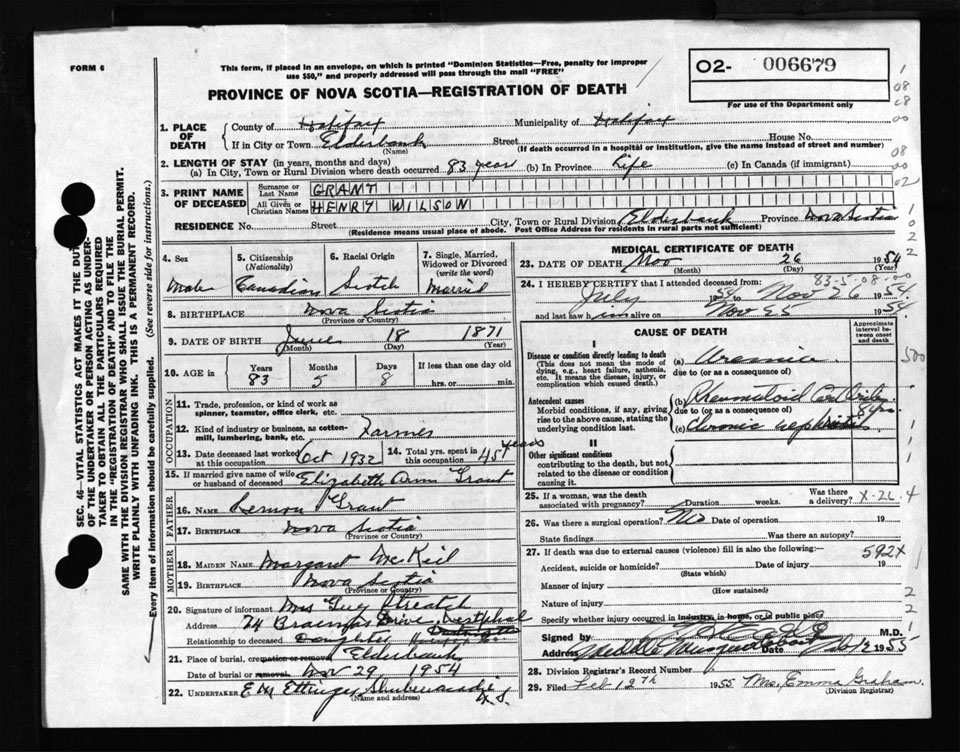 FORM 6
This form, if placed in an envelope, on which is printed "Dominion Statistics—Free, penalty for improper
use $50," and properly addressed will pass through the mail "FREE"
PROVINCE OF NOVA SCOTIA—REGISTRATION OF DEATH
O2- 006679
For use of the Department only
1. PLACE OF DEATH
County of Halifax Municipality of Halifax
If in City or Town Elderbank Street House No.
(Name) (If death occurred in a hospital or institution, give the name instead of street and number)
2. LENGTH OF STAY (in years, months and days)
(a) In City, Town or Rural Division where death occurred 83 years (b) In Province Life (c) In Canada (if immigrant)
3. PRINT NAME OF DECEASED
Surname or Last Name GRANT
All Given or Christian Names HENRY WILSON
RESIDENCE No. Street City, Town or Rural Division Elderbank Province Nova Scotia
(Residence means usual place of abode. Post Office Address for residents in rural parts not sufficient)
4. Sex Male
5. Citizenship (Nationality) Canadian
6. Racial Origin Scotch
7. Single, Married, Widowed or Divorced (write the word) Married
8. BIRTHPLACE Nova Scotia
(Province or Country)
9. DATE OF BIRTH June 18 1871
(Month) (Day) (Year)
10. AGE in Years 83 Months 5 Days 8 If less than one day old hrs. or min.
OCCUPATION
11. Trade, profession, or kind of work as spinner, teamster, office clerk, etc.
12. Kind of industry or business, as cotton-mill, lumbering, bank, etc. Farmer
13. Date deceased last worked at this occupation Oct 1932
14. Total yrs. spent in this occupation 45 years
15. If married give name of wife or husband of deceased Elizabeth Ann Grant
FATHER
16. Name Grant
17. Birthplace Nova Scotia
(Province or Country)
MOTHER
18. MAIDEN NAME Margaret
19. BIRTHPLACE Nova Scotia
(Province or Country)
20. Signature of informant Mrs Guy Streatch
Address 74 Drive, Westphal
Relationship to deceased daughter
21. Place of burial, cremation or removal Elderbank
Date of burial or removal Nov 29 1954
22. UNDERTAKER E M Ettinger Shubenacadie
(Name and address)
MEDICAL CERTIFICATE OF DEATH
23. DATE OF DEATH Nov 26 1954
(Month) (Day) (Year)
83-5-08-00
24. I HEREBY CERTIFY that I attended deceased from:
July 1954 to Nov 26 1954
and last saw him alive on Nov 25 1954
CAUSE OF DEATH
Approximate interval between onset and death
I
Disease or condition directly leading to death
(This does not mean the mode of dying, e.g., heart failure, asthenia, etc. It means the disease, injury, or complication which caused death.)
(a) Uremia
due to (or as a consequence of)
Antecedent causes
Morbid conditions, if any, giving rise to the above cause, stating the underlying condition last.
(b) Rheumatoid
due to (or as a consequence of)
(c) Chronic nephritis
II
Other significant conditions
contributing to the death, but not related to the disease or condition causing it.
25. If a woman, was the death associated with pregnancy? Duration weeks. Was there a delivery? X-26.4
26. Was there a surgical operation? No Date of operation 19
State findings Was there an autopsy?
27. If death was due to external causes (violence) fill in also the following:— 592X
Accident, suicide or homicide? Date of injury 19
(State which)
Manner of injury
(How sustained)
Nature of injury
Specify whether injury occurred in industry, in home, or in public place
Signed by M.D.
Address Middle Musquodoboit Date Feb 12 1955
28. Division Registrar's Record Number
29. Filed Feb 12th 1955 Mrs. Emma Graham.
(Division Registrar)
SEC. 46—VITAL STATISTICS ACT MAKES IT THE DUTY
OF THE UNDERTAKER OR PERSON ACTING AS UNDER-
TAKER TO OBTAIN ALL THE PARTICULARS REQUIRED
IN THE "REGISTRATION OF DEATH" AND TO FILE THE
SAME WITH THE DIVISION REGISTRAR WHO SHALL ISSUE THE BURIAL PERMIT.
WRITE PLAINLY WITH UNFADING INK. THIS IS A PERMANENT RECORD.
Every item of information should be carefully supplied. (See reverse side for instructions.)